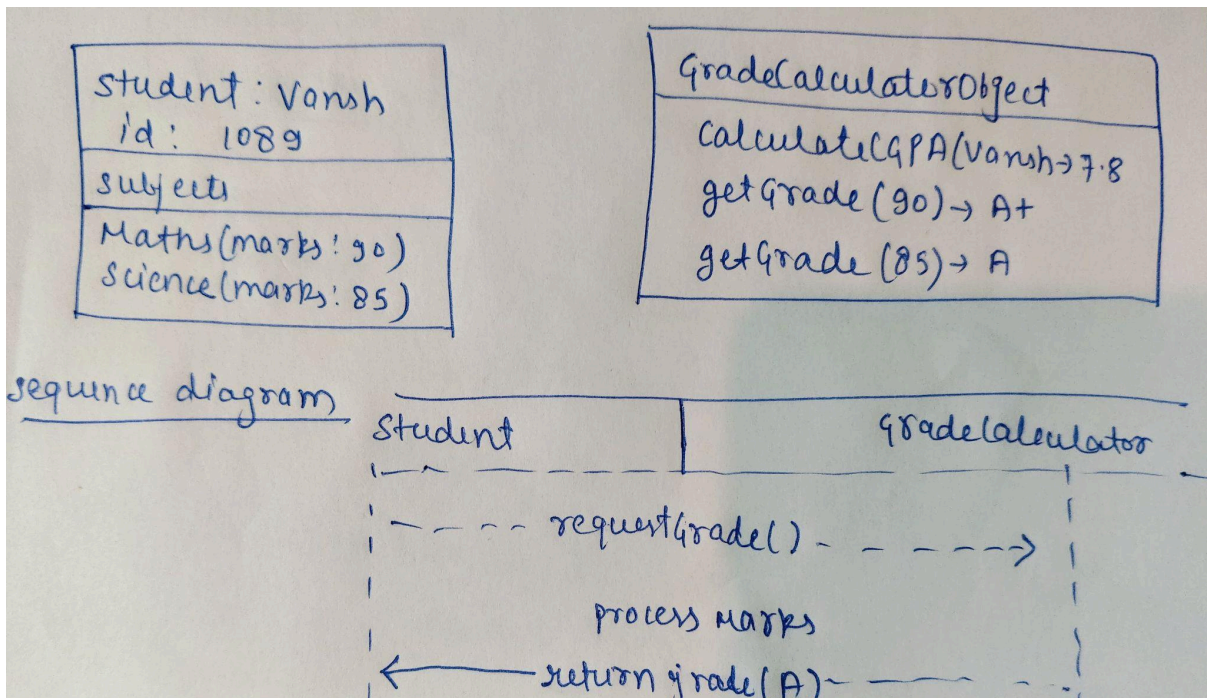 student: Vansh
id: 1089
subjects
Maths(marks: 90)
Science(marks: 85)
GradeCalculatorObject
CalculateCGPA(Vansh→7.8
getGrade(90)→ A+
getGrade(85)→ A
sequence diagram
Student GradeCalculator
requestGrade()
process marks
return grade(A)